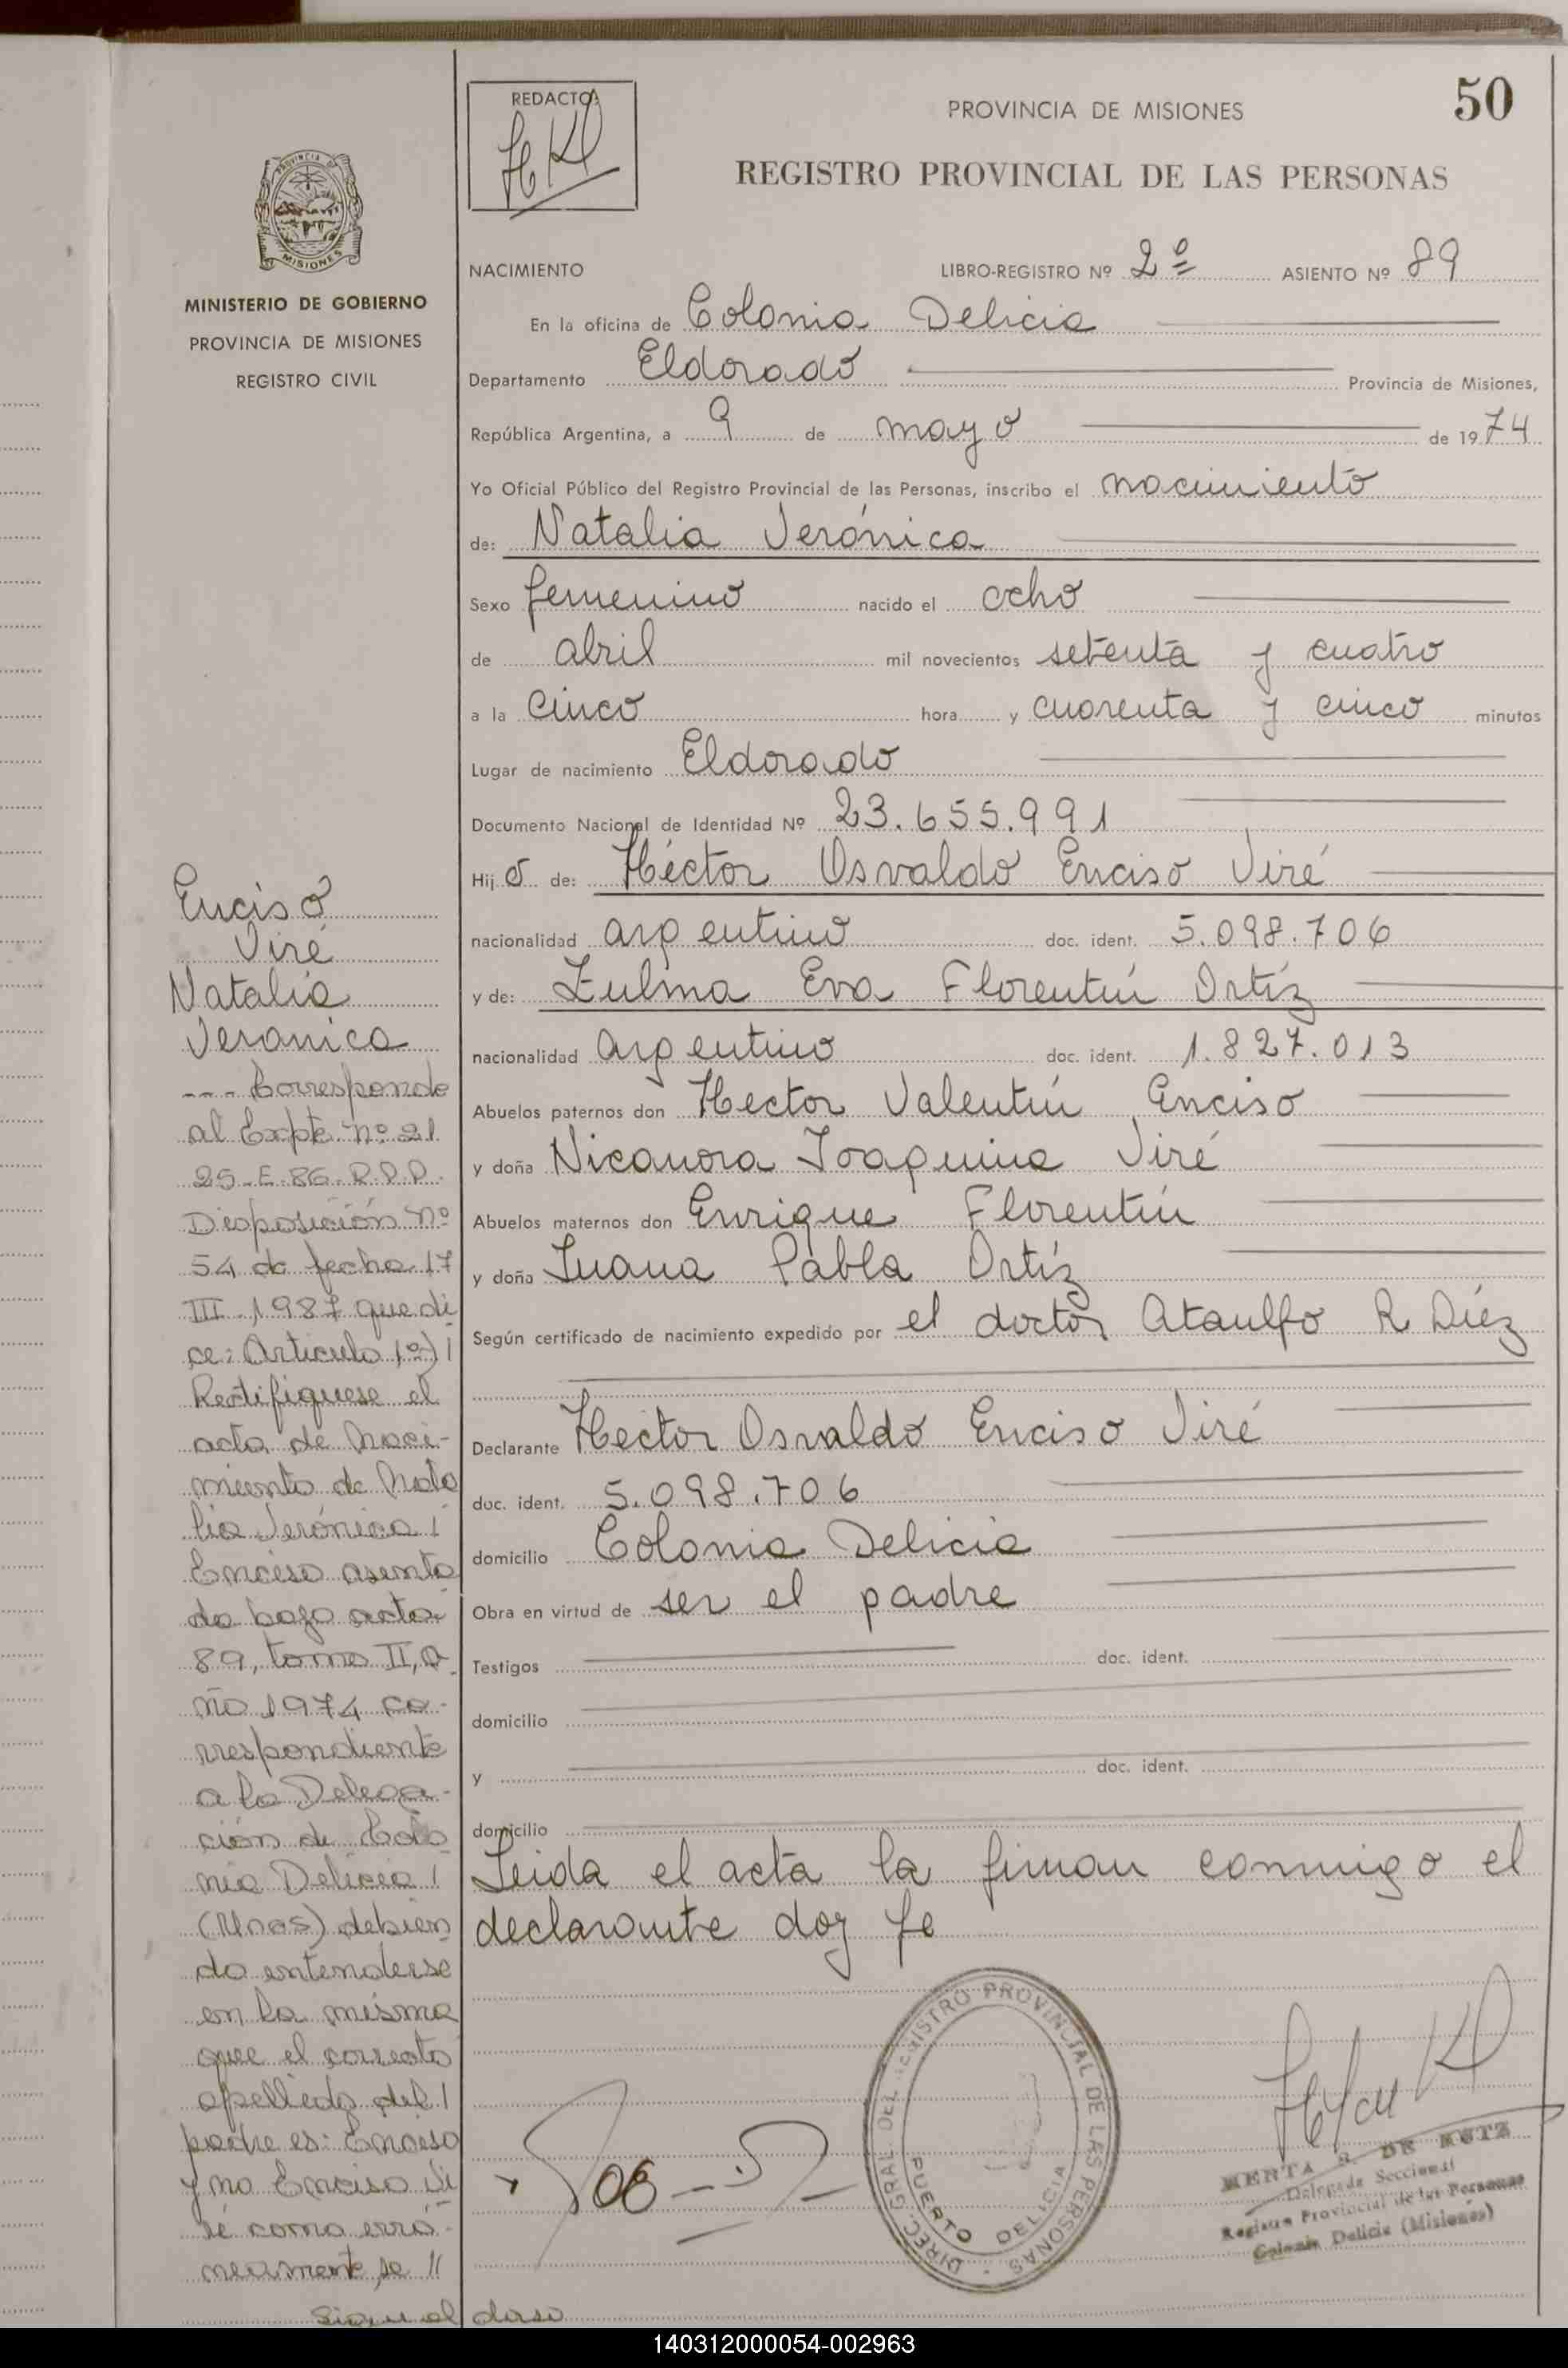 50
REDACTO:
PROVINCIA DE MISIONES
REGISTRO PROVINCIAL DE LAS PERSONAS
PROVINCIA DE
MISIONES
MINISTERIO DE GOBIERNO
PROVINCIA DE MISIONES
REGISTRO CIVIL
NACIMIENTO LIBRO-REGISTRO Nº 2º ASIENTO Nº 89
En la oficina de Colonia Delicia
Departamento Eldorado Provincia de Misiones,
República Argentina, a 9 de mayo de 1974
Yo Oficial Público del Registro Provincial de las Personas, inscribo el nacimiento
de: Natalia Verónica
Sexo femenino nacido el ocho
de abril mil novecientos setenta y cuatro
a la cinco hora y cuarenta y cinco minutos
Lugar de nacimiento Eldorado
Documento Nacional de Identidad Nº 23.655.991
Hijo de: Héctor Osvaldo Enciso Viré
nacionalidad argentino doc. ident. 5.098.706
y de: Zulma Eva Florentín Ortíz
nacionalidad argentino doc. ident. 1.827.013
Abuelos paternos don Hector Valentín Enciso
y doña Nicanora Joaquina Viré
Abuelos maternos don Enrique Florentín
y doña Juana Pabla Ortíz
Según certificado de nacimiento expedido por el doctor Ataulfo R Díez
Declarante Hector Osvaldo Enciso Viré
doc. ident. 5.098.706
domicilio Colonia Delicia
Obra en virtud de ser el padre
Testigos doc. ident.
domicilio
y doc. ident.
domicilio
Leida el acta la firman conmigo el
declarante doy fe
Enciso
Viré
Natalia
Veronica
--- Corresponde
al Expte. nº 21
25-E-86-R.P.P.
Disposición nº
54 de fecha 17
III-1987 que di
ce: Articulo 1º) /
Rectifiquese el
acta de naci-
miento de Nata
lia Verónica /
Enciso asenta
da bajo acta
89, tomo II, a
ño 1974 co-
rrespondiente
a la Delega-
ción de Colo
nia Delicia /
(Mnes) debien
do entenderse
en la misma
que el correcto
apellido del /
padre es: Enciso
y no Enciso Vi
ré como erró-
neamente se //
Sigue al dorso
DIREC. GRAL DEL REGISTRO PROVINCIAL DE LAS PERSONAS
PUERTO DELICIA
HERTA R. DE KUTZ
Delegada Seccional
Registro Provincial de las Personas
Colonia Delicia (Misiones)
140312000054-002963